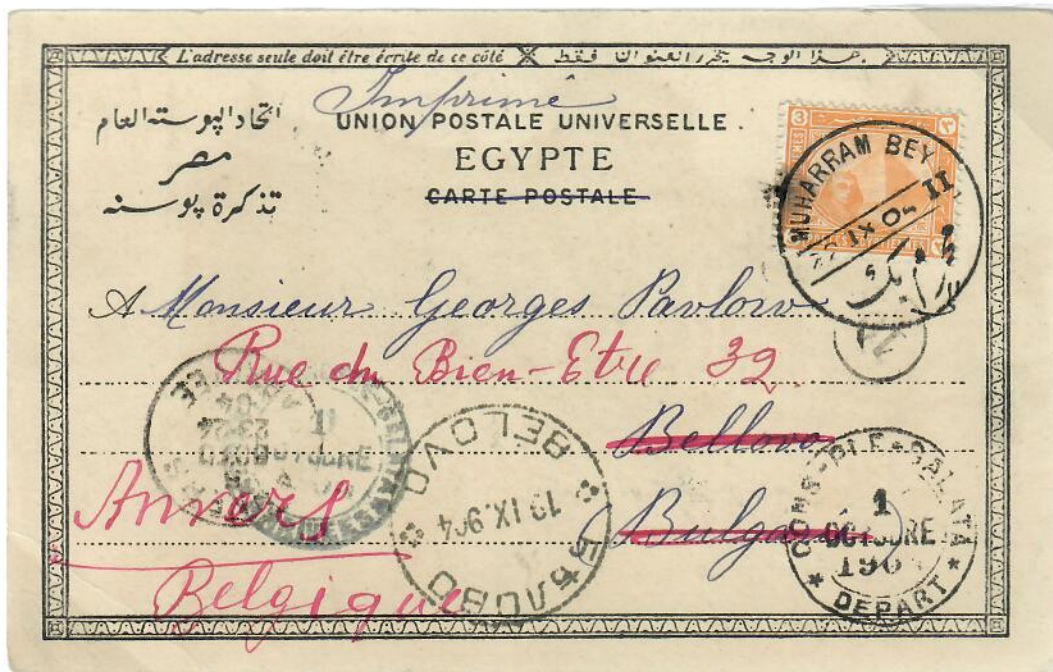 L'adresse seule doit être écrite de ce côté هذا الوجه يحرر العنوان فقط
Imprimé
اتحاد البوسته العام
مصر
تذكرة بوسته
UNION POSTALE UNIVERSELLE.
EGYPTE
CARTE POSTALE
3
MUHARRAM BEY
IX 04 II
A Monsieur Georges Pavlow
Rue du Bien-Etre 32
Bellovo
Bulgarie
Anvers
Belgique
BELOVO
19.IX.904
БѢЛОВО
CONS-PLE-GALATA
1
OCTOBRE
190
DEPART